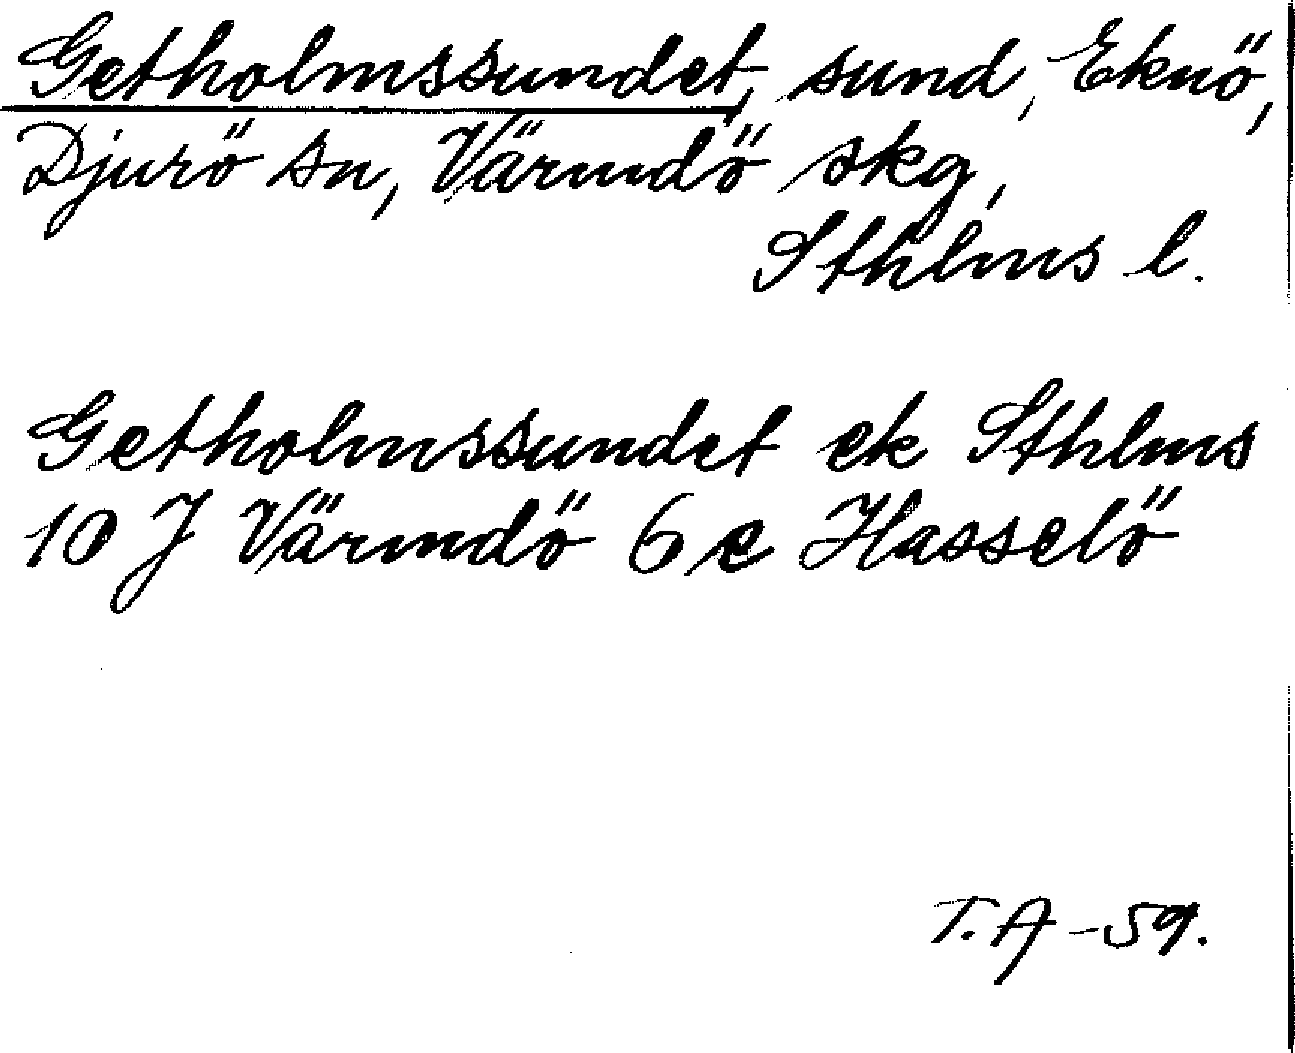 Getholmssundet, sund, Eknö,
Djurö sn, Värmdö skg,
Sthlms l.
Getholmssundet ek Sthlms
10 J Värmdö 6 e Hasselö
T.A -59.